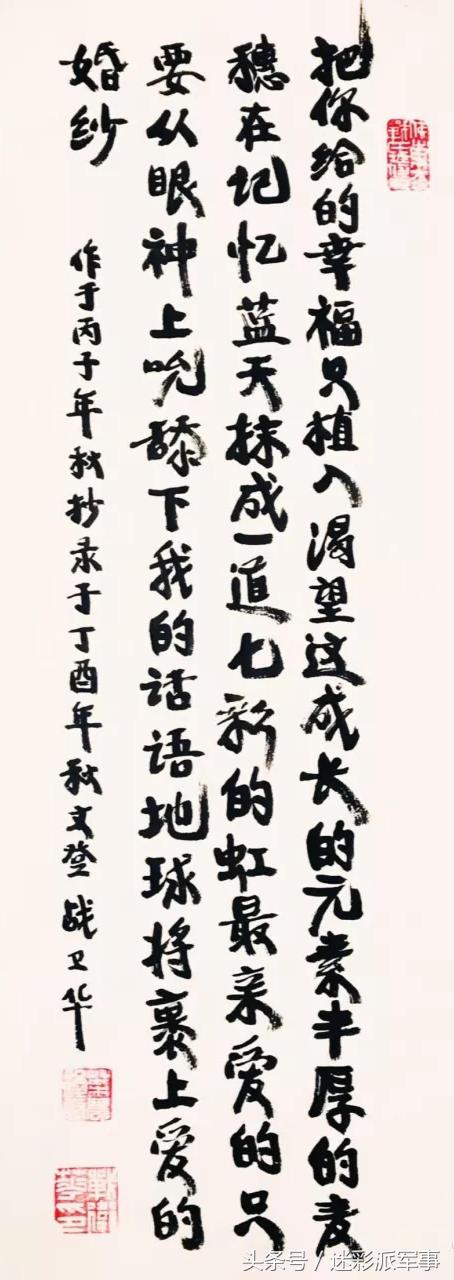 把你给的幸福只植入渴望这成长的元素丰厚的麦
穗在记忆蓝天抹成一道七彩的虹最亲爱的只
要从眼神上吮舔下我的话语地球将裹上爱的
婚纱
作于丙子年秋抄录于丁酉年秋文登战卫华
头条号/迷彩派军事